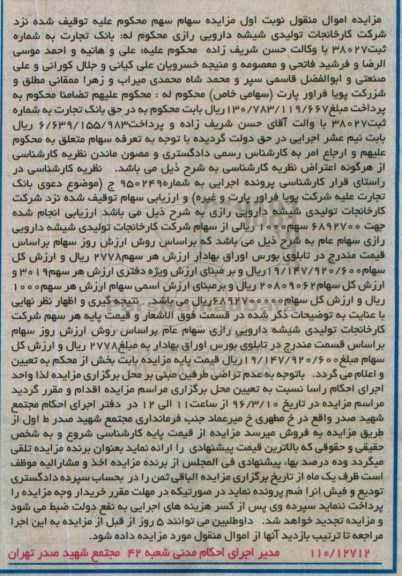 مزایده اموال منقول نوبت اول مزایده سهام سهم محکوم علیه توقیف شده نزد
شرکت کارخانجات تولیدی شیشه دارویی رازی محکوم له: بانک تجارت به شماره
ثبت۳۸۰۲۷ با وکالت حسن شریف زاده محکوم علیه: علی و هانیه و احمد موسی
الرضا و فرشید فاتحی و معصومه و منیجه خسرویان علی کیانی و جلال کورانی و علی
صنعتی و ابوالفضل قاسمی سپر و محمد شاه محمدی میراب و زهرا ممقانی مطلق و
شزرکت پویا فراور پارت (سهامی خاص) محکوم له : محکوم علیهم تضامنا محکوم به
پرداخت مبلغ۱۳۰/۷۸۳/۱۱۹/۶۶۷ریال بابت محکوم به در حق بانک تجارت به شماره
ثبت۳۸۰۲۷ با والت آقای حسن شریف زاده و پرداخت۶/۶۳۹/۱۵۵/۹۸۳ ریال
بابت نیم عشر اجرایی در حق دولت گردیده با توجه به تعرفه سهام متعلق به محکوم
علیهم و ارجاع امر به کارشناس رسمی دادگستری و مصون ماندن نظریه کارشناسی
از هرگونه اعتراض نظریه کارشناسی به شرح ذیل می باشد. نظریه کارشناسی در
راستای قرار کارشناسی پرونده اجرایی به شماره۹۵۰۲۴۹ ج (موضوع دعوی بانک
تجارت علیه شرکت پویا فراور پارت و غیره) و ارزیابی سهام توقیف شده نزد شرکت
کارخانجات تولیدی شیشه دارویی رازی به شرح ذیل می باشد ارزیابی انجام شده
جهت ۶۸۹۲۷۰۰ سهم۱۰۰۰ ریالی از سهام شرکت کارخانجات تولیدی شیشه دارویی
رازی سهام عام به شرح ذیل می باشد که براساس روش ارزش روز سهام براساس
قیمت مندرج در تابلوی بورس اوراق بهادار ارزش هر سهم۲۷۷۸ ریال و ارزش کل
سهام۱۹/۱۴۷/۹۲۰/۶۰۰ریال و بر مبنای ارزش ویژه دفتری ارزش هر سهم۳۰۱۹ و
ارزش کل سهام۲۰۸۰۹۰۶۲ ریال و برمبنای ارزش اسمی سهام ارزش هر سهم۱۰۰۰
ریال و ارزش کل سهام۶۸۹۲۷۰۰۰۰۰ریال می باشد. نتیجه گیری و اظهار نظر نهایی
با عنایت به توضیحات ذکر شده در قسمت فوق الاشعار و قیمت پایه هر سهم شرکت
کارخانجات تولیدی شیشه دارویی رازی سهام عام براساس روش ارزش روز سهام
براساس قسمت مندرج در تابلوی بورس اوراق بهادار به مبلغ۲۷۷۸ ریال و ارزش کل
سهام مبلغ۱۹/۱۴۷/۹۲۰/۶۰۰ریال قیمت پایه مزایده بابت بخش از محکم به تعیین
و اعلام می گردد. باتوجه به عدم تراضی طرفین مبنی بر محل برگزاری مزایده لذا واحد
اجرای احکام راسا نسبت به تعیین محل برگزاری مراسم مزایده اقدام و مقرر گردید
مراسم مزایده در تاریخ ۹۶/۳/۱۰ از ساعت۱۱ الی ۱۲ در دفتر اجرای احکام مجتمع
شهید صدر واقع در خ مطهری خ میرعماد جنب فرمانداری مجتمع شهید صدر ط اول از
طریق مزایده به فروش میرسد مزایده از قیمت پایه کارشناسی شروع و به شخص
حقیقی و حقوقی که بالاترین قیمت پیشنهادی را ارائه نماید بعنوان برنده مزایده تلقی
میگردد وده درصد بهاء پیشنهادی فی المجلس از برنده مزایده اخذ و مشارالیه موظف
است ظرف یک ماه از تاریخ برگزاری مزایده الباقی ثمن را در بحساب سپرده دادگستری
تودیع و فیش انرا ضم پرونده نماید در صورتیکه در مهلت مقرر خریدار وجه مزایده را
پرداخت ننماید سپرده وی پس از کسر هزینه های اجرایی به نفع دولت ضبط می شود
و مزایده تجدید خواهد شد. داوطلبین می توانند ۵ روز از قبل از مزایده به این اجرا
مراجعه تا ترتیب بازدید آنها از اموال منقول مورد مزایده داده شود.
۱۱۰/۱۲۷۱۲ مدیر اجرای احکام مدنی شعبه ۴۲ مجتمع شهید صدر تهران